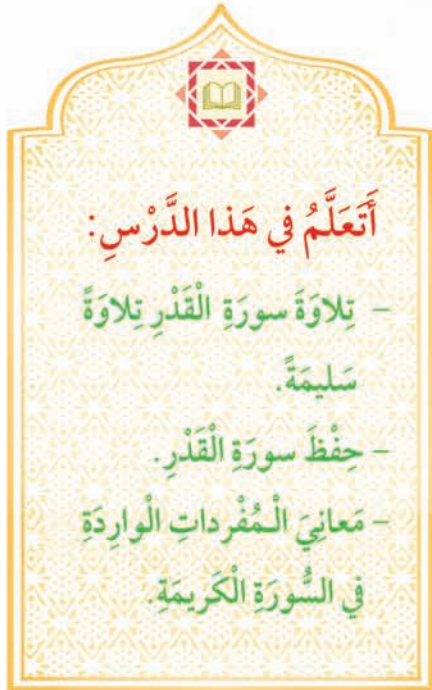 أَتَعَلَّمُ في هَذا الدَّرْسِ:
- تِلاوَةَ سورَةِ الْقَدْرِ تِلاوَةً
سَليمَةً.
- حِفْظَ سورَةِ الْقَدْرِ.
- مَعانِيَ الْمُفْرداتِ الْوارِدَةِ
في السُّورَةِ الْكَريمَةِ.